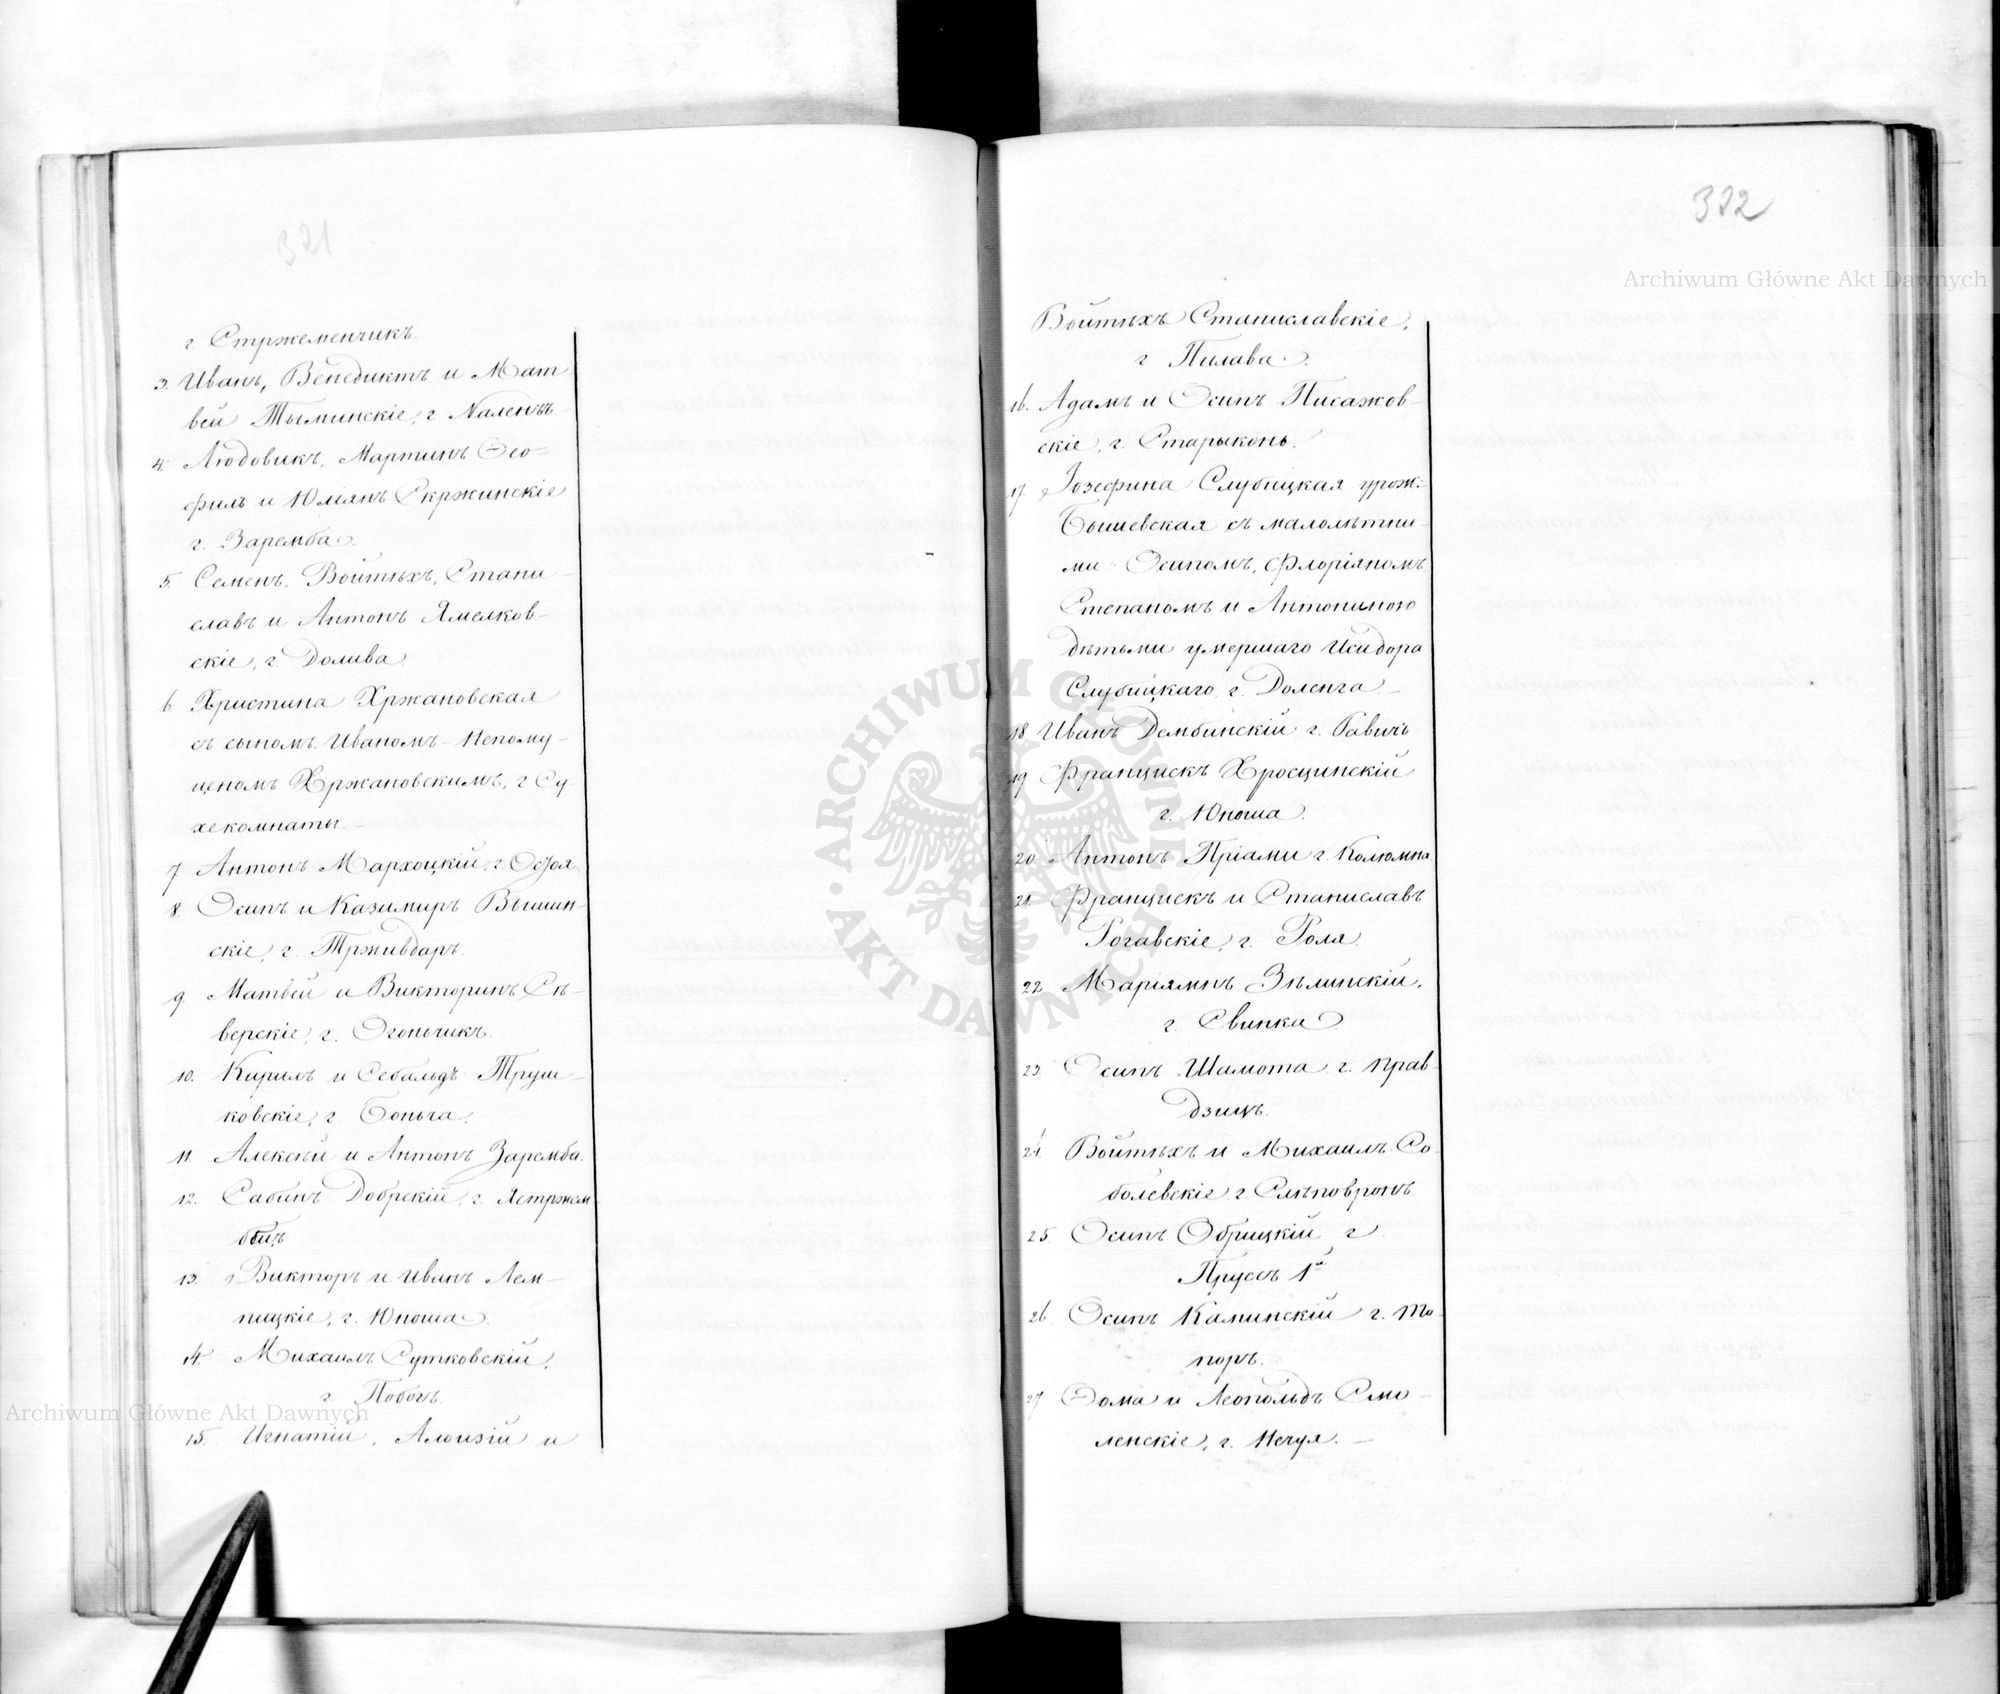 321
г Стржеменчикъ.
3. Иванъ, Венедиктъ и Мат-
вей Тыминскіе, г. Наленчъ-
4. Людовикъ, Мартинъ Ѳео-
филъ и Юліянъ Скржинскіе
г. Заремба.
5. Семенъ, Войтѣхъ, Стани-
славъ и Антонъ Ямелков-
скіе, г. Долива
6 Христина Хржановская
съ сыномъ Иваномъ-Непому-
ценомъ Хржановскимъ, г Су-
хекомнаты. -
7 Антонъ Мархоцкій, г. Остоя.
8. Осипъ и Казимиръ Вышин-
скіе, г. Тржывдаръ.
9. Матвей и Викторинъ Сѣ-
верскіе, г. Огончикъ.
10. Кирилъ и Себальдъ Труш-
ковскіе, г. Боньча.
11. Алексѣй и Антонъ Заремба.
12. Сабинъ Добрскій, г. Ястржем
бецъ
13. Викторъ и Иванъ Лем-
пицкіе, г. Юноша.
14. Михаилъ Сутковскій,
г. Побогъ.
15. Игнатій, Алоизій и
322
Войтѣхъ Станиславскіе,
г Пилава.
16. Адамъ и Осипъ Писажов-
скіе, г. Старыконь.
17. Іозефина Слубицкая урож:
Бышевская съ малолѣтни-
ми Осипомъ, Флоріяномъ
Степаномъ и Антониною
дѣтьми умершаго Исидора
Слубицкаго, г. Доленга -
18 Иванъ Дембинскій г. Равичъ
19 Францискъ Хросцинскій
г. Юноша.
20. Антонъ Пріами г. Колюмна.
21. Францискъ и Станиславъ
Рогавскіе, г. Роля.
22 Маріяннъ Зѣлинскій,
г. Свинка
23 Осипъ Шамота г. Прав-
дзицъ.
24. Войтѣхъ и Михаилъ Со-
болевскіе г Слѣповронъ.
25 Осипъ Обрицкій г
Прусъ 1е
26 Осипъ Каминскій г. То-
поръ.
27 Ѳома и Леопольдъ Смо-
ленскіе, г. Нечуя. -
Archiwum Główne Akt Dawnych
Archiwum Główne Akt Dawnych
ARCHIWUM GŁÓWNE AKT DAWNYCH